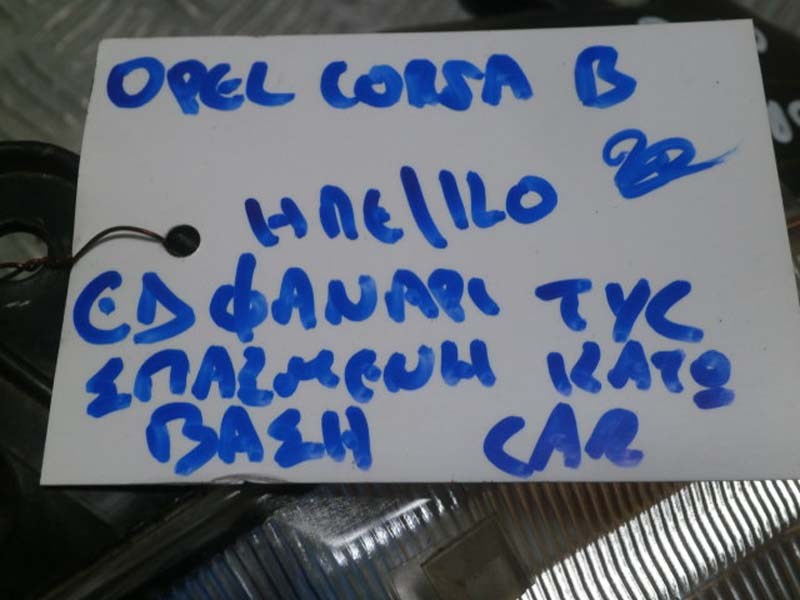 OPEL CORSA B
ΗΛΕ/ΙΚΟ
ΕΔ ΦΑΝΑΡΙ TYC
ΣΠΑΣΜΕΝΗ ΚΑΤΩ
ΒΑΣΗ CAR